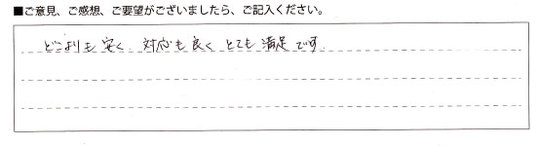 ■ご意見、ご感想、ご要望がございましたら、ご記入ください。
どこよりも安く 対応も良く とても 満足です